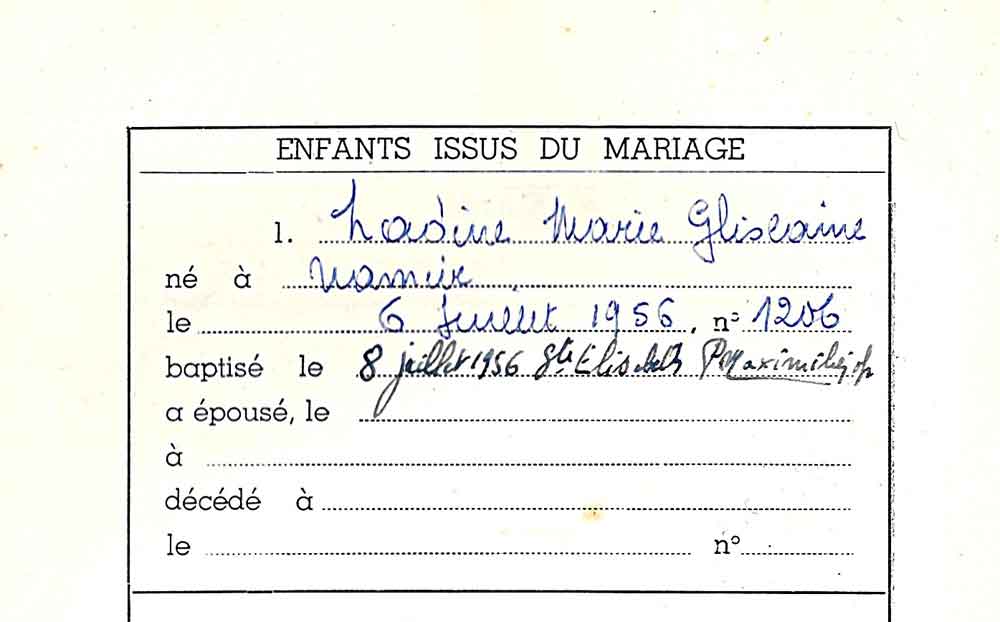 ENFANTS ISSUS DU MARIAGE
1. Nadine Marie Ghislaine
né à Namur
le 6 Juillet 1956, n° 1206
baptisé le 8 juillet 1956 Ste Elisabeth P Maximilien
a épousé, le
à
décédé à
le n°